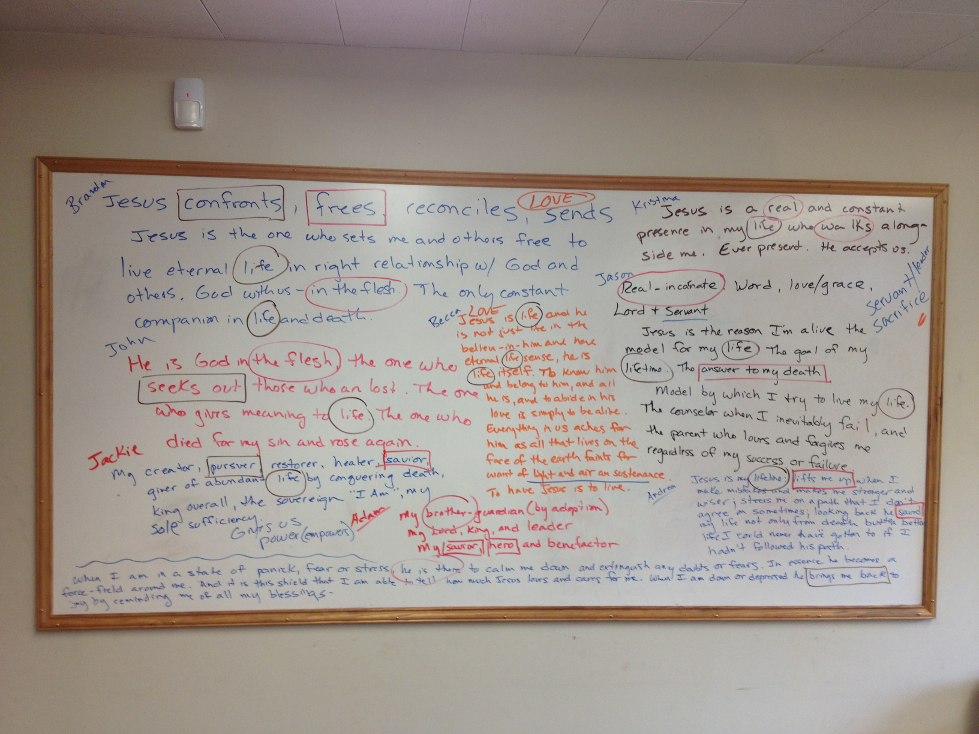 Brandon
Jesus confronts, frees, reconciles, sends
LOVE
Jesus is the one who sets me and others free to
live eternal life in right relationship w/ God and
others. God with us - in the flesh The only constant
companion in life and death.
John
He is God in the flesh, the one who
seeks out those who are lost. The one
who gives meaning to life. The one who
died for my sin and rose again.
Jackie
My creator, pursuer, restorer, healer, savior,
giver of abundant life by conquering death,
king over all, the sovereign "I Am", my
sole sufficiency.
Gives us
power (empowers)
Becca
LOVE
Jesus is life and he
is not just live in the
believe-in-him and have
eternal life sense, he is
life itself. To know him
and belong to him, and all
he is, and to abide in his
love is simply to be alive.
Everything in us aches for
him as all that lives on the
face of the earth faints for
want of light and air and sustenance.
To have Jesus is to live.
Adam
my brother-guardian (by adoption)
my Lord, King, and leader
My savior, hero and benefactor
Kristina
Jesus is a real and constant
presence in my life who walks along-
side me. Ever present. He accepts us.
Jason
Real-incarnate. Word, love/grace,
Lord + Servant
servant/leader
Sacrifice
Jesus is the reason I'm alive the
model for my life The goal of my
lifetime. The answer to my death
Model by which I try to live my life.
The counselor when I inevitably fail, and
the parent who loves and forgives me
regardless of my success or failure
Andrea
Jesus is my lifeline, lifts me up when I
make mistakes and makes me stronger and
wiser; steers me on a path that I don't
agree on sometimes; looking back he saved
my life not only from death but the better
life I could never have gotten to if I
hadn't followed his path.
When I am in a state of panick, fear or stress, he is there to calm me down and extinguish any doubts or fears. In essence he becomes a
force-field around me. And it is this shield that I am able to tell how much Jesus loves and cares for me. When I am down or depressed he brings me back to
joy by reminding me of all my blessings-